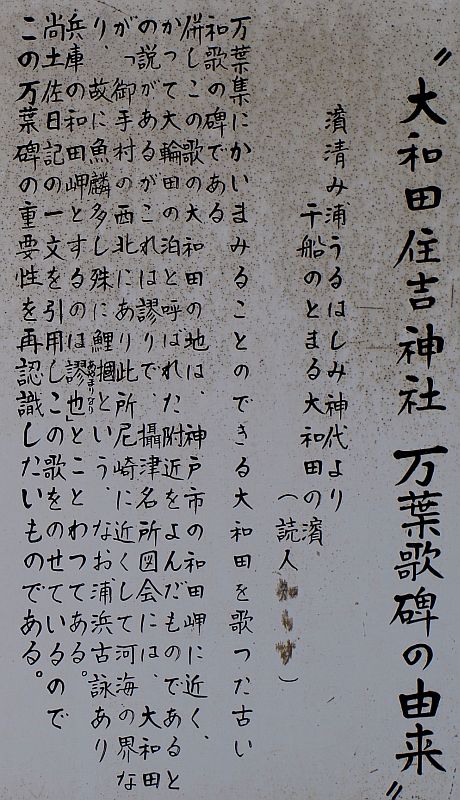 〝大和田住吉神社 万葉歌碑の由来〟
濱清み浦うるはしみ神代より
千船のとまる大和田の濱
（読人知らず）
万葉集にかいまみることのできる大和田を歌った古い
和歌の碑である
併しこの歌の大和田の地は、神戸市の和田岬に近く、
かつて大輪田の泊と呼ばれた附近をよんだものであると
の説があるがこれは謬りで 攝津名所図会には、大和田
がっ御手村の西北にあり此所尼崎に近くして河海の界な
り、故に魚麟多し殊に鯉摑という、なお浦浜古詠あり
兵庫の和田岬とするのは謬也」とことわってある。
あやまりなり
尚土佐日記の一文を引用しこの歌をのせているので
この万葉碑の重要性を再認識したいものである。